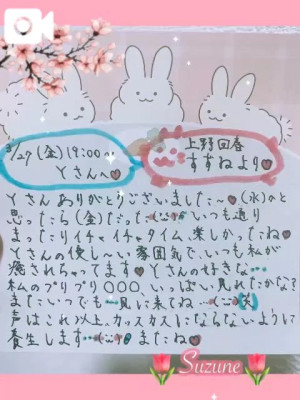 3/27(金)19:00〜
Yさんへ♥
上野回春
すずねより♥
Yさんありがとうございました〜♥(水)のと
思ったら(金)だった(笑)いつも通り
まったりイチャイチャタイム、楽しかったね♥
Yさんの優し〜い雰囲気で、いつも私が
癒されちゃってます♥Yさんの好きな…
私のプリプリ〇〇〇、いっぱい見れたかな?
またいつでも見に来てね…
声はこれ以上、カッスカスにならないように
養生します…またね♥
Suzune